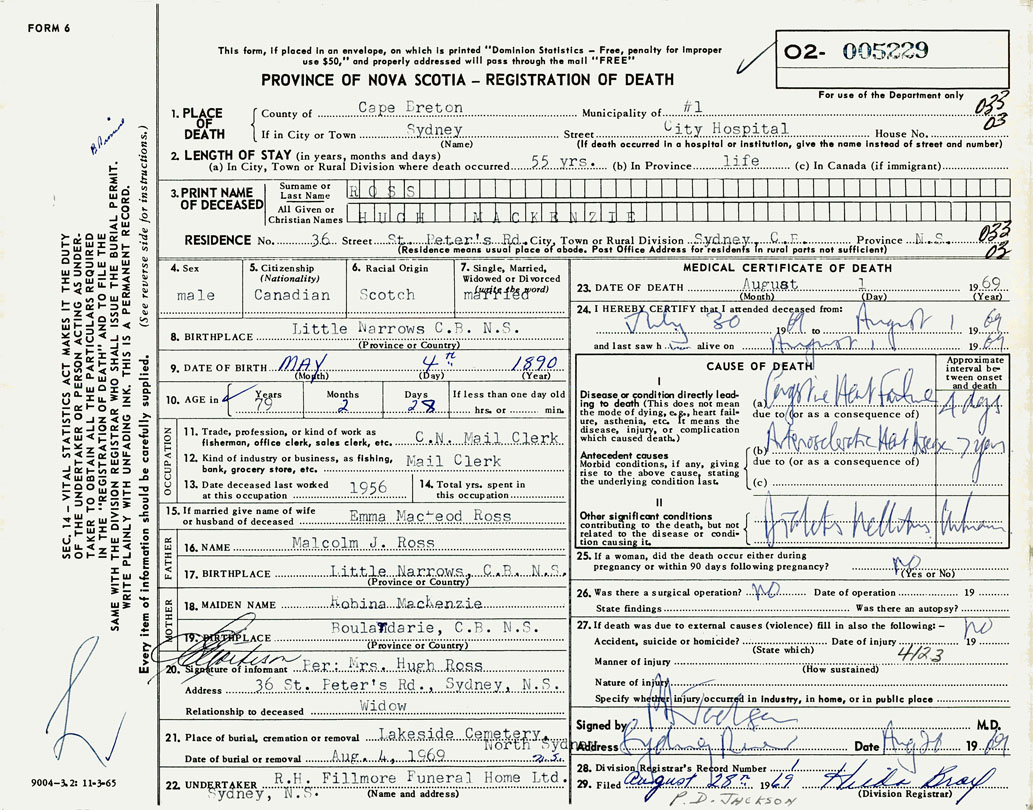 FORM 6
This form, if placed in an envelope, on which is printed "Dominion Statistics – Free, penalty for improper
use $50," and properly addressed will pass through the mail "FREE"
PROVINCE OF NOVA SCOTIA – REGISTRATION OF DEATH
02- 005229
For use of the Department only
033
03
1. PLACE OF DEATH
County of Cape Breton Municipality of #1
If in City or Town Sydney Street City Hospital House No.
(Name) (If death occurred in a hospital or institution, give the name instead of street and number)
2. LENGTH OF STAY (in years, months and days)
(a) In City, Town or Rural Division where death occurred 55 yrs. (b) In Province life (c) In Canada (if immigrant)
3. PRINT NAME OF DECEASED
Surname or Last Name ROSS
All Given or Christian Names HUGH MACKENZIE
RESIDENCE No. 36 Street St. Peter's Rd. City, Town or Rural Division Sydney, C.B. Province N.S.
(Residence means usual place of abode. Post Office Address for residents in rural parts not sufficient)
033
02
4. Sex
male
5. Citizenship
(Nationality)
Canadian
6. Racial Origin
Scotch
7. Single, Married,
Widowed or Divorced
(write the word)
married
8. BIRTHPLACE Little Narrows C.B. N.S.
(Province or Country)
9. DATE OF BIRTH MAY 4th 1890
(Month) (Day) (Year)
10. AGE in Years 79 Months 2 Days 28 If less than one day old
hrs. or min.
OCCUPATION
11. Trade, profession, or kind of work as
fisherman, office clerk, sales clerk, etc. C.N. Mail Clerk
12. Kind of industry or business, as fishing,
bank, grocery store, etc. Mail Clerk
13. Date deceased last worked
at this occupation 1956
14. Total yrs. spent in
this occupation
15. If married give name of wife
or husband of deceased Emma MacLeod Ross
FATHER
16. NAME Malcolm J. Ross
17. BIRTHPLACE Little Narrows, C.B. N.S.
(Province or Country)
MOTHER
18. MAIDEN NAME Robina MacKenzie
19. BIRTHPLACE Boulardarie, C.B. N.S.
(Province or Country)
20. Signature of informant Per: Mrs. Hugh Ross
Address 36 St. Peter's Rd., Sydney, N.S.
Relationship to deceased Widow
21. Place of burial, cremation or removal Lakeside Cemetery,
North Sydney
Date of burial or removal Aug. 4, 1969 N.S.
22. UNDERTAKER R.H. Fillmore Funeral Home Ltd.
Sydney, N.S. (Name and address)
MEDICAL CERTIFICATE OF DEATH
23. DATE OF DEATH August 1 1969
(Month) (Day) (Year)
24. I HEREBY CERTIFY that I attended deceased from:
July 30 1969 to August 1 1969
and last saw h im alive on August 1 1969
CAUSE OF DEATH
Approximate
interval be-
tween onset
and death
I
Disease or condition directly lead-
ing to death (This does not mean
the mode of dying, e.g., heart fail-
ure, asthenia, etc. It means the
disease, injury, or complication
which caused death.)
(a) Congestive Heart Failure 4 days
due to (or as a consequence of)
Antecedent causes
Morbid conditions, if any, giving
rise to the above cause, stating
the underlying condition last.
(b) Arteriosclerotic Heart Disease 7 years
due to (or as a consequence of)
(c)
II
Other significant conditions
contributing to the death, but not
related to the disease or condi-
tion causing it.
Diabetes Mellitus Unknown
25. If a woman, did the death occur either during
pregnancy or within 90 days following pregnancy? NO
(Yes or No)
26. Was there a surgical operation? NO Date of operation 19
State findings Was there an autopsy?
27. If death was due to external causes (violence) fill in also the following:– NO
Accident, suicide or homicide? Date of injury 19
(State which)
4123
Manner of injury
(How sustained)
Nature of injury
Specify whether injury occurred in industry, in home, or in public place
Signed by M.D.
Address Sydney River Date Aug 20 1969
28. Division Registrar's Record Number 1
29. Filed August 28th 1969
(Division Registrar)
P.D. JACKSON
SEC. 14 – VITAL STATISTICS ACT MAKES IT THE DUTY
OF THE UNDERTAKER OR PERSON ACTING AS UNDER-
TAKER TO OBTAIN ALL THE PARTICULARS REQUIRED
IN THE "REGISTRATION OF DEATH" AND TO FILE THE
SAME WITH THE DIVISION REGISTRAR WHO SHALL ISSUE THE BURIAL PERMIT.
WRITE PLAINLY WITH UNFADING INK. THIS IS A PERMANENT RECORD.
Every item of information should be carefully supplied. (See reverse side for instructions.)
9004–3.2: 11-3-65